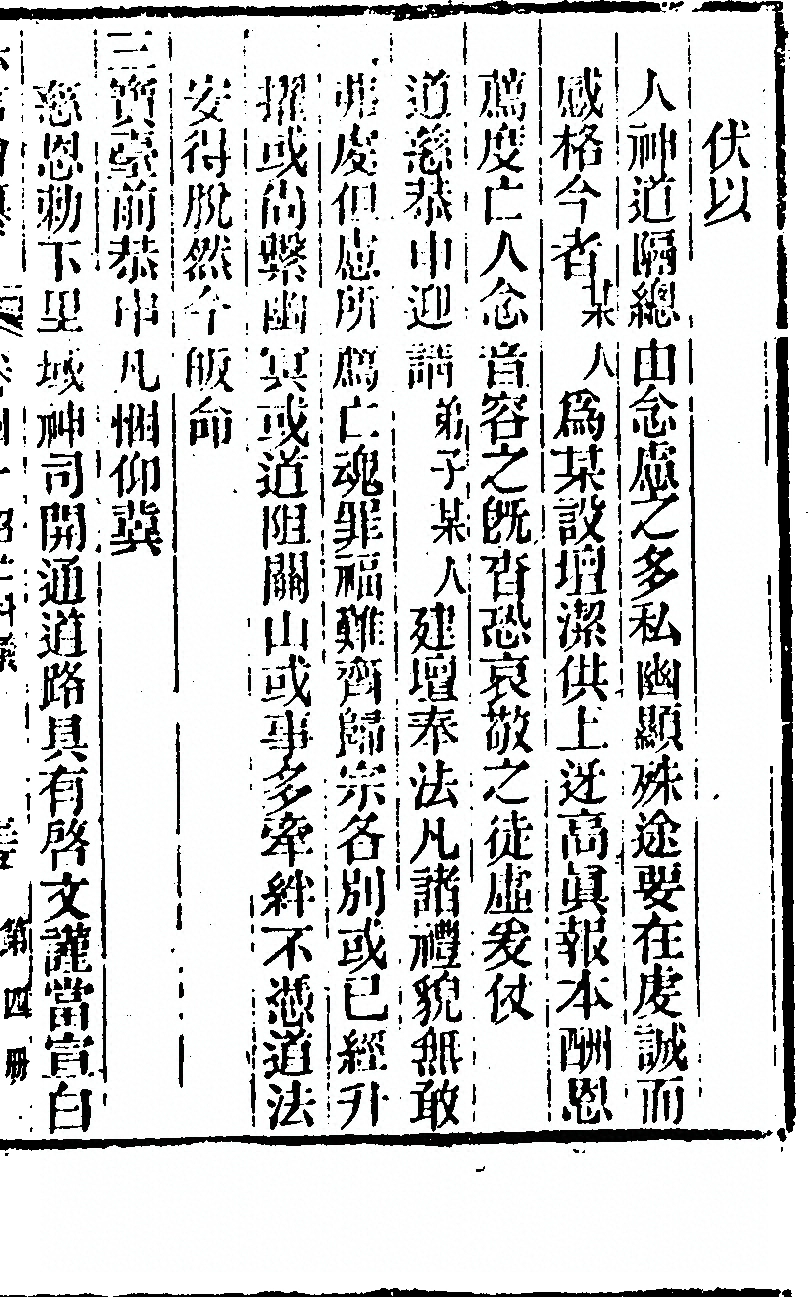 伏以
人神道隔總由念慮之多私幽顯殊途要在虔誠而
感格今者某人爲某設壇潔供上迓高眞報本酬恩
薦度亡人念音容之旣杳恐哀敬之徒虛爰仗
道慈恭申迎請弟子某人建壇奉法凡諸禮貌無敢
弗虔但慮所薦亡魂罪福難齊歸宗各別或已經升
擢或尚繫幽冥或道阻關山或事多牽絆不憑道法
安得脫然今皈命
三寶臺前恭申凡悃仰冀
慈恩勅下里域神司開通道路具有啓文謹當宣白
第四册